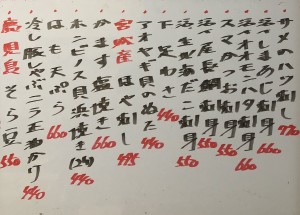 サメのハツ刺し 770
活〆しまあじ刺身 660
活〆オオニベ刺身 660
スマかつお刺身 550
活〆尾長鯛刺身 550
下足わさ 440
アオヤギ貝のぬた 440
宮城産 ほや刺し 495
かます塩焼き 660
ホンビノス貝浜焼き(2ヶ) 440
はも天ぷら 660
冷し豚しゃぶニラ玉ぬかり 440
鹿児島 そら豆 550